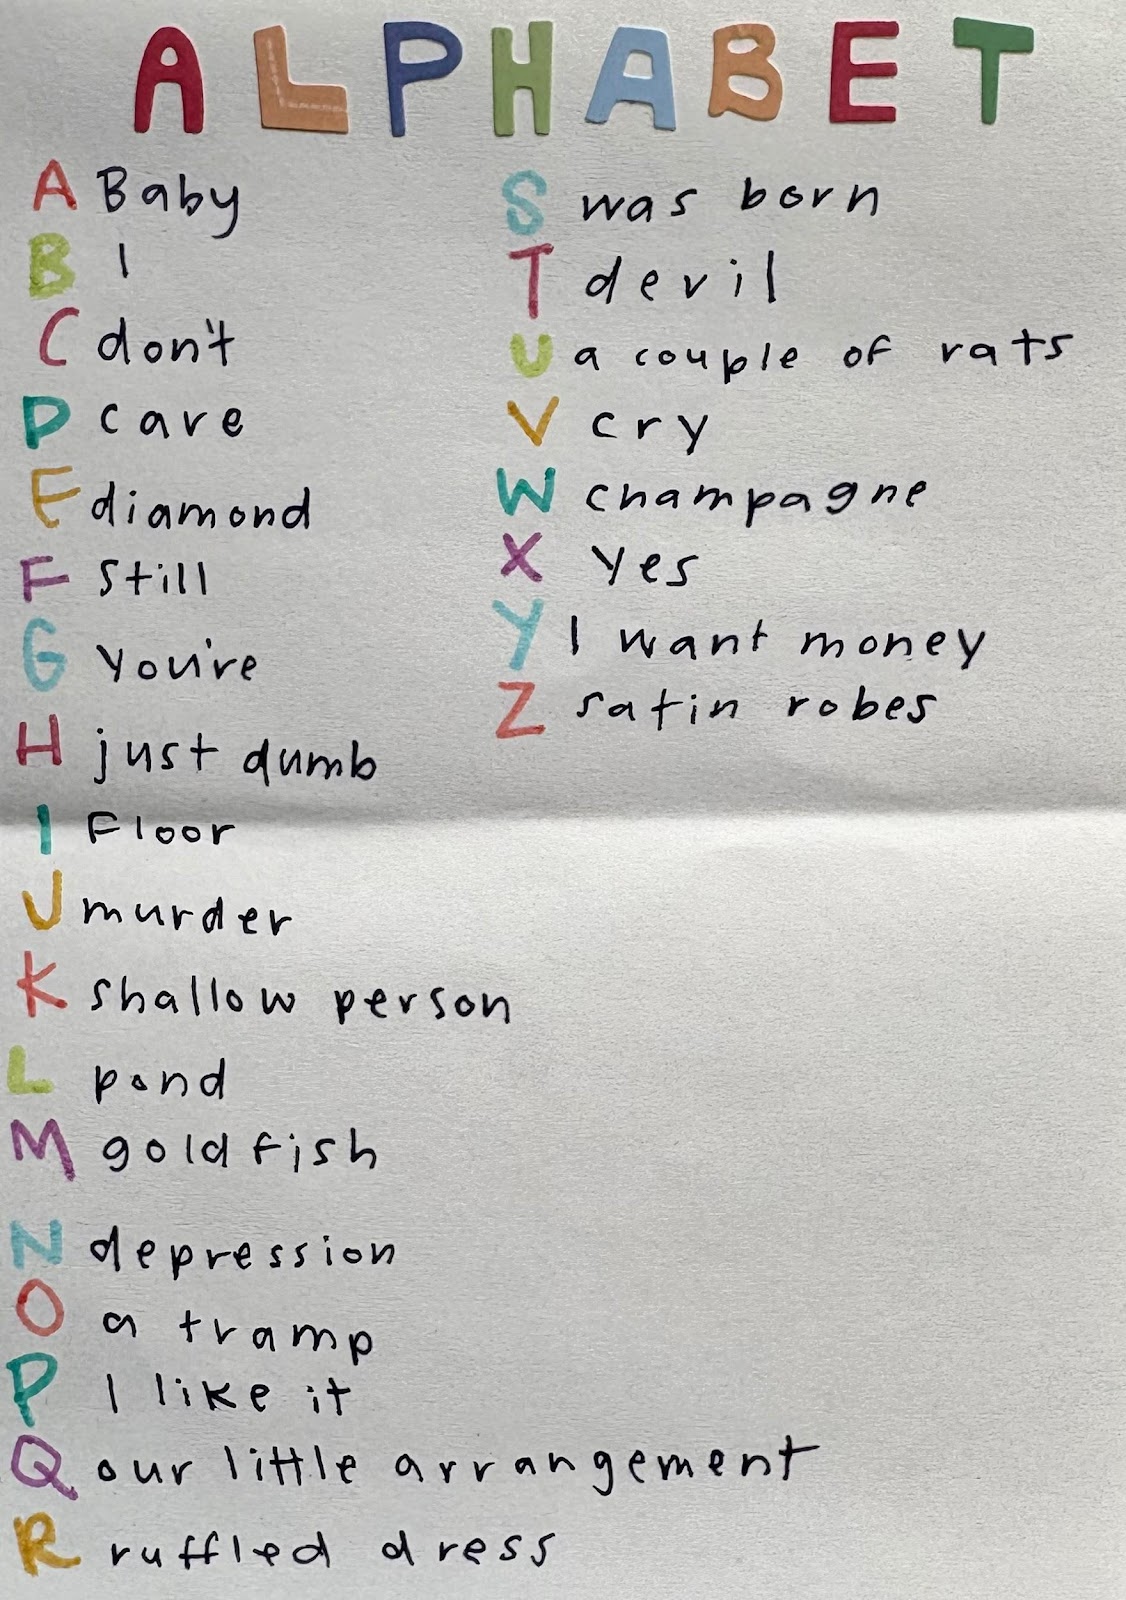 ALPHABET
A Baby
B I
C don't
D care
E diamond
F Still
G You're
H just dumb
I Floor
J murder
K shallow person
L pond
M goldfish
N depression
O a tramp
P I like it
Q our little arrangement
R ruffled dress
S was born
T devil
U a couple of rats
V cry
W champagne
X Yes
Y I want money
Z satin robes